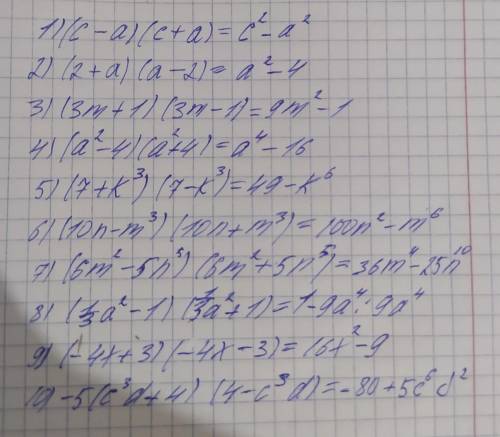 1) (c - a) (c + a) = c² - a²
2) (2 + a) (a - 2) = a² - 4
3) (3m + 1) (3m - 1) = 9m² - 1
4) (a² - 4) (a² + 4) = a⁴ - 16
5) (7 + k³) (7 - k³) = 49 - k⁶
6) (10n - m³) (10n + m³) = 100n² - m⁶
7) (6m² - 5n⁵) (6m² + 5n⁵) = 36m⁴ - 25n¹⁰
8) (1/3a² - 1) (1/3a² + 1) = 1 - 9a⁴ : 9a⁴
9) (-4x + 3) (-4x - 3) = 16x² - 9
10) -5(c³d + 4) (4 - c³d) = -80 + 5c⁶d²